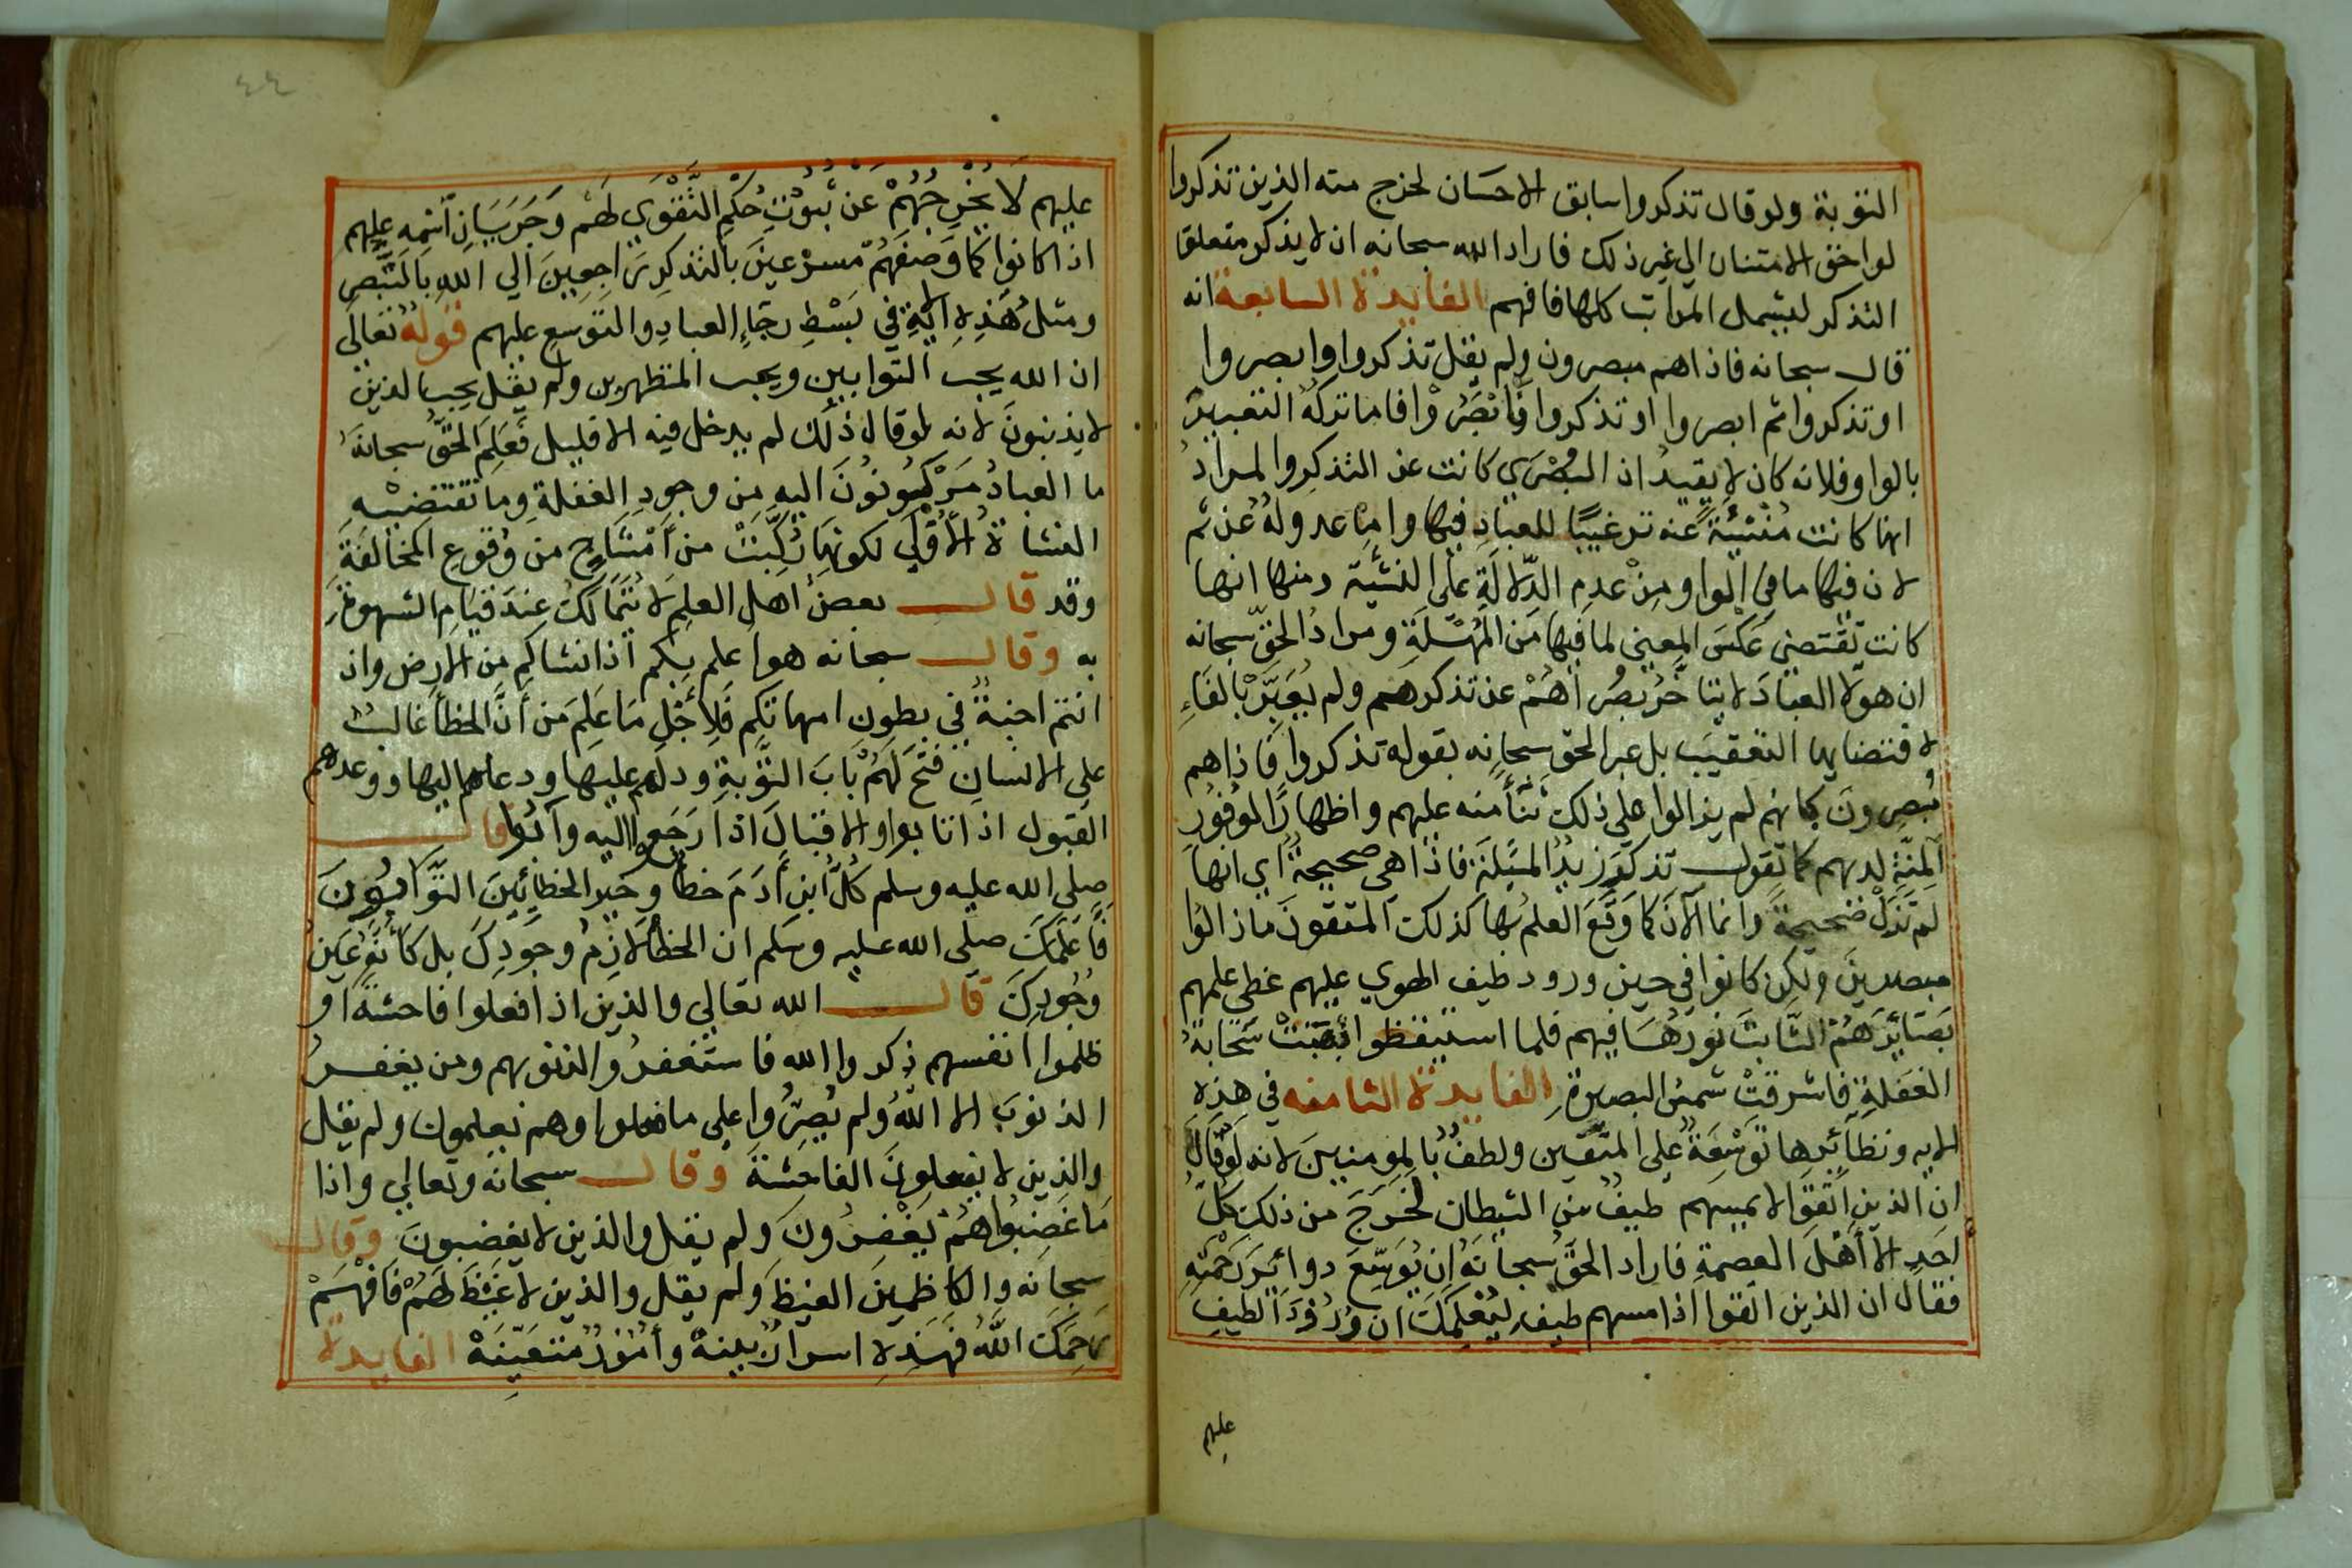 التوبة ولو قال تذكروا سابق الاحسان لخرج منه الذين تذكروا
لواحق الامتنان الي غير ذلك فاراد الله سبحانه ان لا يذكر متعلق
التذكر ليشمل المراتب كلها فافهم الفايدة السابعة انه
قال سبحانه فاذاهم مبصرون ولم يقل تذكروا وابصروا
او تذكروا ثم ابصروا او تذكروا فابصروا فاما تركه التعبير
بالواو فلانه كان لا يفيد ان البصري كانت عن التذكر والمراد
انها كانت منشية عنه ترغيبا للعباد فيها واما عدوله عن ثم
لان فيها ما في الواو من عدم الدلالة على النشية ومنها انها
كانت تقتضي عكس المعني لما فيها من المهلة ومراد الحق سبحانه
ان هولا العباد لا يتاخر بصراهم عن تذكرهم ولم يعبر بالفاء
لاقتضايها التعقيب بل عبر الحق سبحانه بقوله تذكروا فاذاهم
مبصرون كانهم لم يزالوا على ذلك ثنأ منه عليهم واظهارا لوفور
المنة لديهم كما تقول تذكر زيد المسلة فاذا هي صحيحة اي انها
لم تزل صحيحة وانما الآن كما وقع العلم بها كذلك المتقون ما زالوا
مبصرين ولكن كانوا في حين ورود طيف الهوي عليهم غطى علمهم
بصايرهم الثابت نورها فيهم فلما استيقظوا ذهبت سحابة
الغفلة فاشرقت شمس البصيرة الفايدة الثامنه في هذه
الايه ونظآئرها توسعة على المتقين ولطف بالمومنين لانه لو قال
ان الذين اتقوا لا يمسهم طيف من الشيطان لخرج من ذلك كل
احد الا أهل العصمة فاراد الحق سبحانه ان يوسع دوائر رحمته
فقال ان الذين اتقوا اذا مسهم طيف ليعلمك ان ورود الطيف
عليهم
عليهم لا يخرجهم عن ثبوت حكم التقوي لهم وجريان اسمه عليهم
اذا كانوا كما وصفهم مسرعين بالتذكر راجعين الي الله بالتبصر
ومثل هذه الاية في بسط رجاء العباد والتوسع عليهم قوله تعالى
ان الله يحب التوابين ويحب المتطهرين ولم يقل يحب الذين
لا يذنبون لانه لو قال ذلك لم يدخل فيه الا قليل فعلم الحق سبحانه
ما العباد مركبون اليه من وجود الغفلة وما تقتضيه
النشاة الأولي لكونها ركبت من أمشاج من وقوع المخالفة
وقد قال بعض اهل العلم لا يتمالك عند قيام الشهوة
به وقال سبحانه هو اعلم بكم اذ انشاكم من الارض واذ
انتم اجنة في بطون امهاتكم فلأجل ما علم من أن الخطأ غالب
على الانسان فتح لهم باب التوبة ودلهم عليها ودعاهم اليها ووعدهم
القبول اذا تابوا والاقبال اذا رجعوا اليه وآبوا قال
صلى الله عليه وسلم كل ابن أدم خطأ وخير الخطائين التوابون
فاعلمك صلى الله عليه وسلم ان الخطأ لازم وجودك بل كأنه عين
وجودك قال الله تعالي والذين اذا فعلوا فاحشة او
ظلموا انفسهم ذكروا الله فاستغفروا لذنوبهم ومن يغفر
الذنوب الا الله ولم يصروا على ما فعلوا وهم يعلمون ولم يقل
والذين لا يفعلون الفاحشة وقال سبحانه وتعالي واذا
ما غضبوا هم يغفرون ولم يقل والذين لا يغضبون وقال
سبحانه والكاظمين الغيظ ولم يقل والذين لا غيظ لهم فافهم
رحمك الله فهذه اسرار بينة وأمور متعينة الفايدة
٤٤